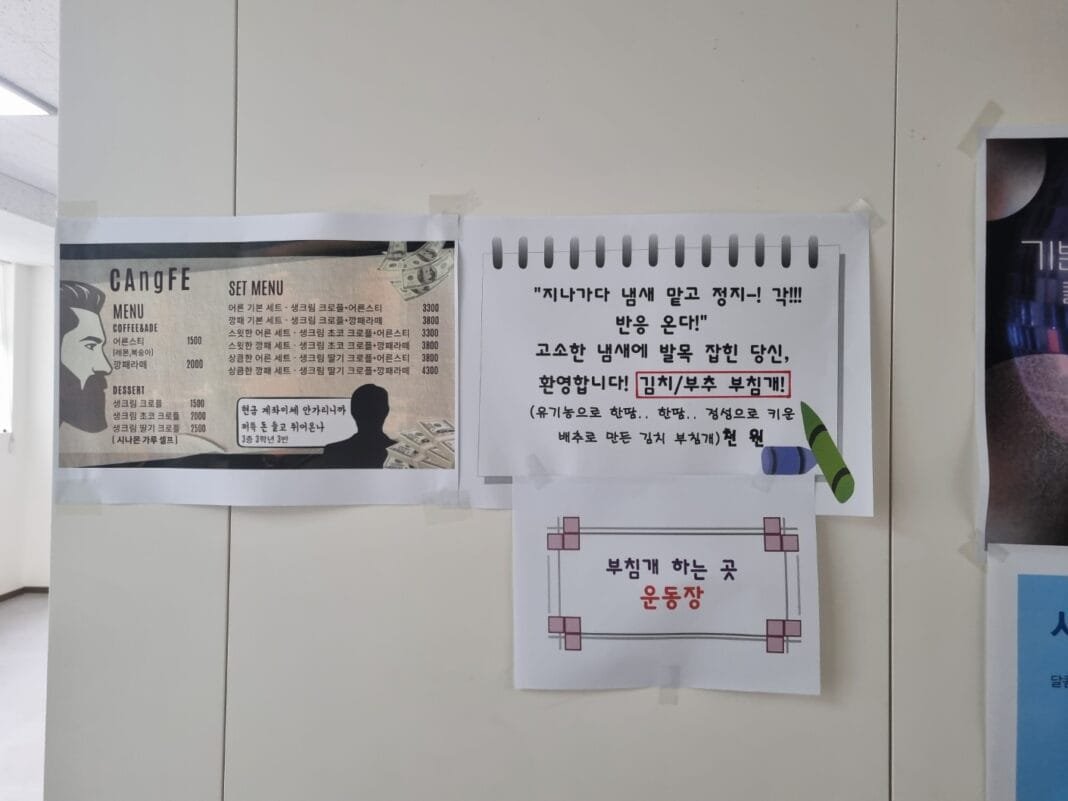 CAngFE
MENU
COFFEE&ADE
어른스티 1500
(레몬,복숭아)
깡패라떼 2000
DESSERT
생크림 크로플 1500
생크림 초코 크로플 2000
생크림 딸기 크로플 2500
( 시나몬 가루 셀프 )
SET MENU
어른 기본 세트 · 생크림 크로플+어른스티 3300
깡패 기본 세트 · 생크림 크로플+깡패라떼 3800
스윗한 어른 세트 · 생크림 초코 크로플+어른스티 3300
스윗한 깡패 세트 · 생크림 초코 크로플+깡패라떼 3800
상큼한 어른 세트 · 생크림 딸기 크로플+어른스티 3800
상큼한 깡패 세트 · 생크림 딸기 크로플+깡패라떼 4300
현금 계좌이체 안가리니까
퍼뜩 돈 들고 튀어온나
3층 3학년 3반
"지나가다 냄새 맡고 정지-! 각!!!
반응 온다!"
고소한 냄새에 발목 잡힌 당신,
환영합니다! 김치/부추 부침개!
(유기농으로 한땀.. 한땀.. 정성으로 키운
배추로 만든 김치 부침개)천 원
부침개 하는 곳
운동장